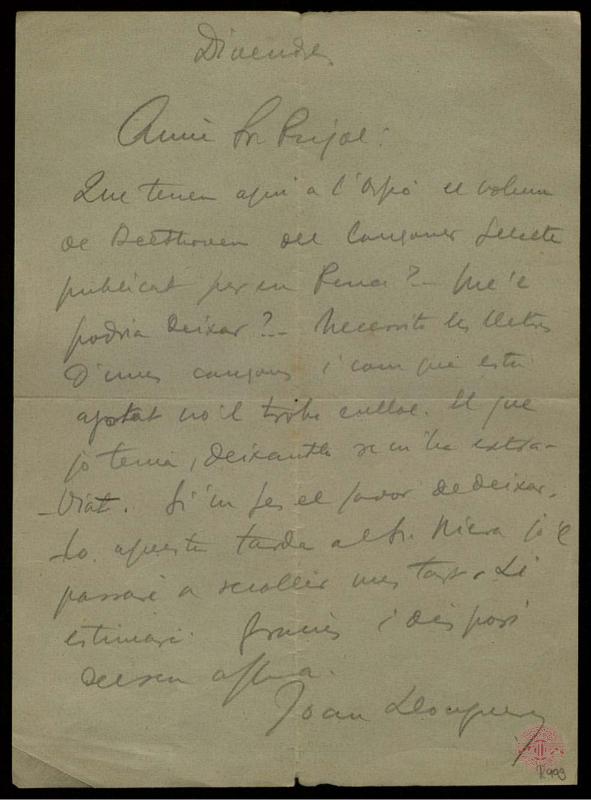 Divendres
Amic Sr. Pujol:
Que tenen aquí a l'Orfeó el volum
de Beethoven del Cançoner Selecte
publicat per en Pena? — Me'l
podria deixar? — Necessito les lletres
d'unes cançons i com que està
agotat no'l trobo enlloc. El que
jo tenia, deixantlo se m'ha extra-
-viat. Si'm fes el favor de deixar-
lo aquesta tarda al Sr. jo'l
passaré a recollir mes tart. Li
estimaré. Gracies i disposi
del seu affm.
Joan Llongueras
R.993